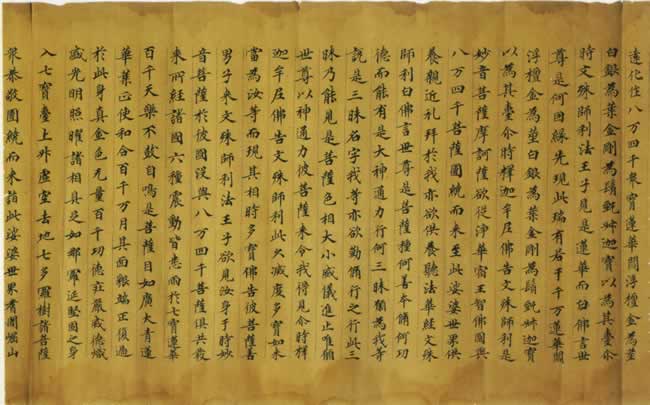 遠化作八万四千眾寶蓮華閻浮檀金為莖
白銀為葉金剛為鬚甄叔迦寶以為其臺尒
時文殊師利法王子見是蓮華而白佛言世
尊是何因緣先現此瑞有若干千万蓮華閻
浮檀金為莖白銀為葉金剛為鬚甄叔迦寶
以為其臺尒時釋迦牟尼佛告文殊師利是
妙音菩薩摩訶薩欲從淨華宿王智佛國與
八万四千菩薩圍繞而來至此娑婆世界供
養親近礼拜於我亦欲供養聽法華經文殊
師利白佛言世尊是菩薩種何善本脩何功
德而能有是大神通力行何三昧願為我等
說是三昧名字我等亦欲勤脩行之行此三
昧乃能見是菩薩色相大小威儀進止唯願
世尊以神通力彼菩薩來令我得見尒時釋
迦牟尼佛告文殊師利此久滅度多寶如來
當為汝等而現其相時多寶佛告彼菩薩善
男子來文殊師利法王子欲見汝身于時妙
音菩薩於彼國沒與八万四千菩薩俱共發
來所經諸國六種震動皆悉雨於七寶蓮華
百千天樂不鼓自鳴是菩薩目如廣大青蓮
華葉正使和合百千万月其面貌端正復過
於此身真金色无量百千功德莊嚴威德熾
盛光明照曜諸相具足如那羅延堅固之身
入七寶臺上昇虛空去地七多羅樹諸菩薩
眾恭敬圍繞而來詣此娑婆世界耆闍崛山